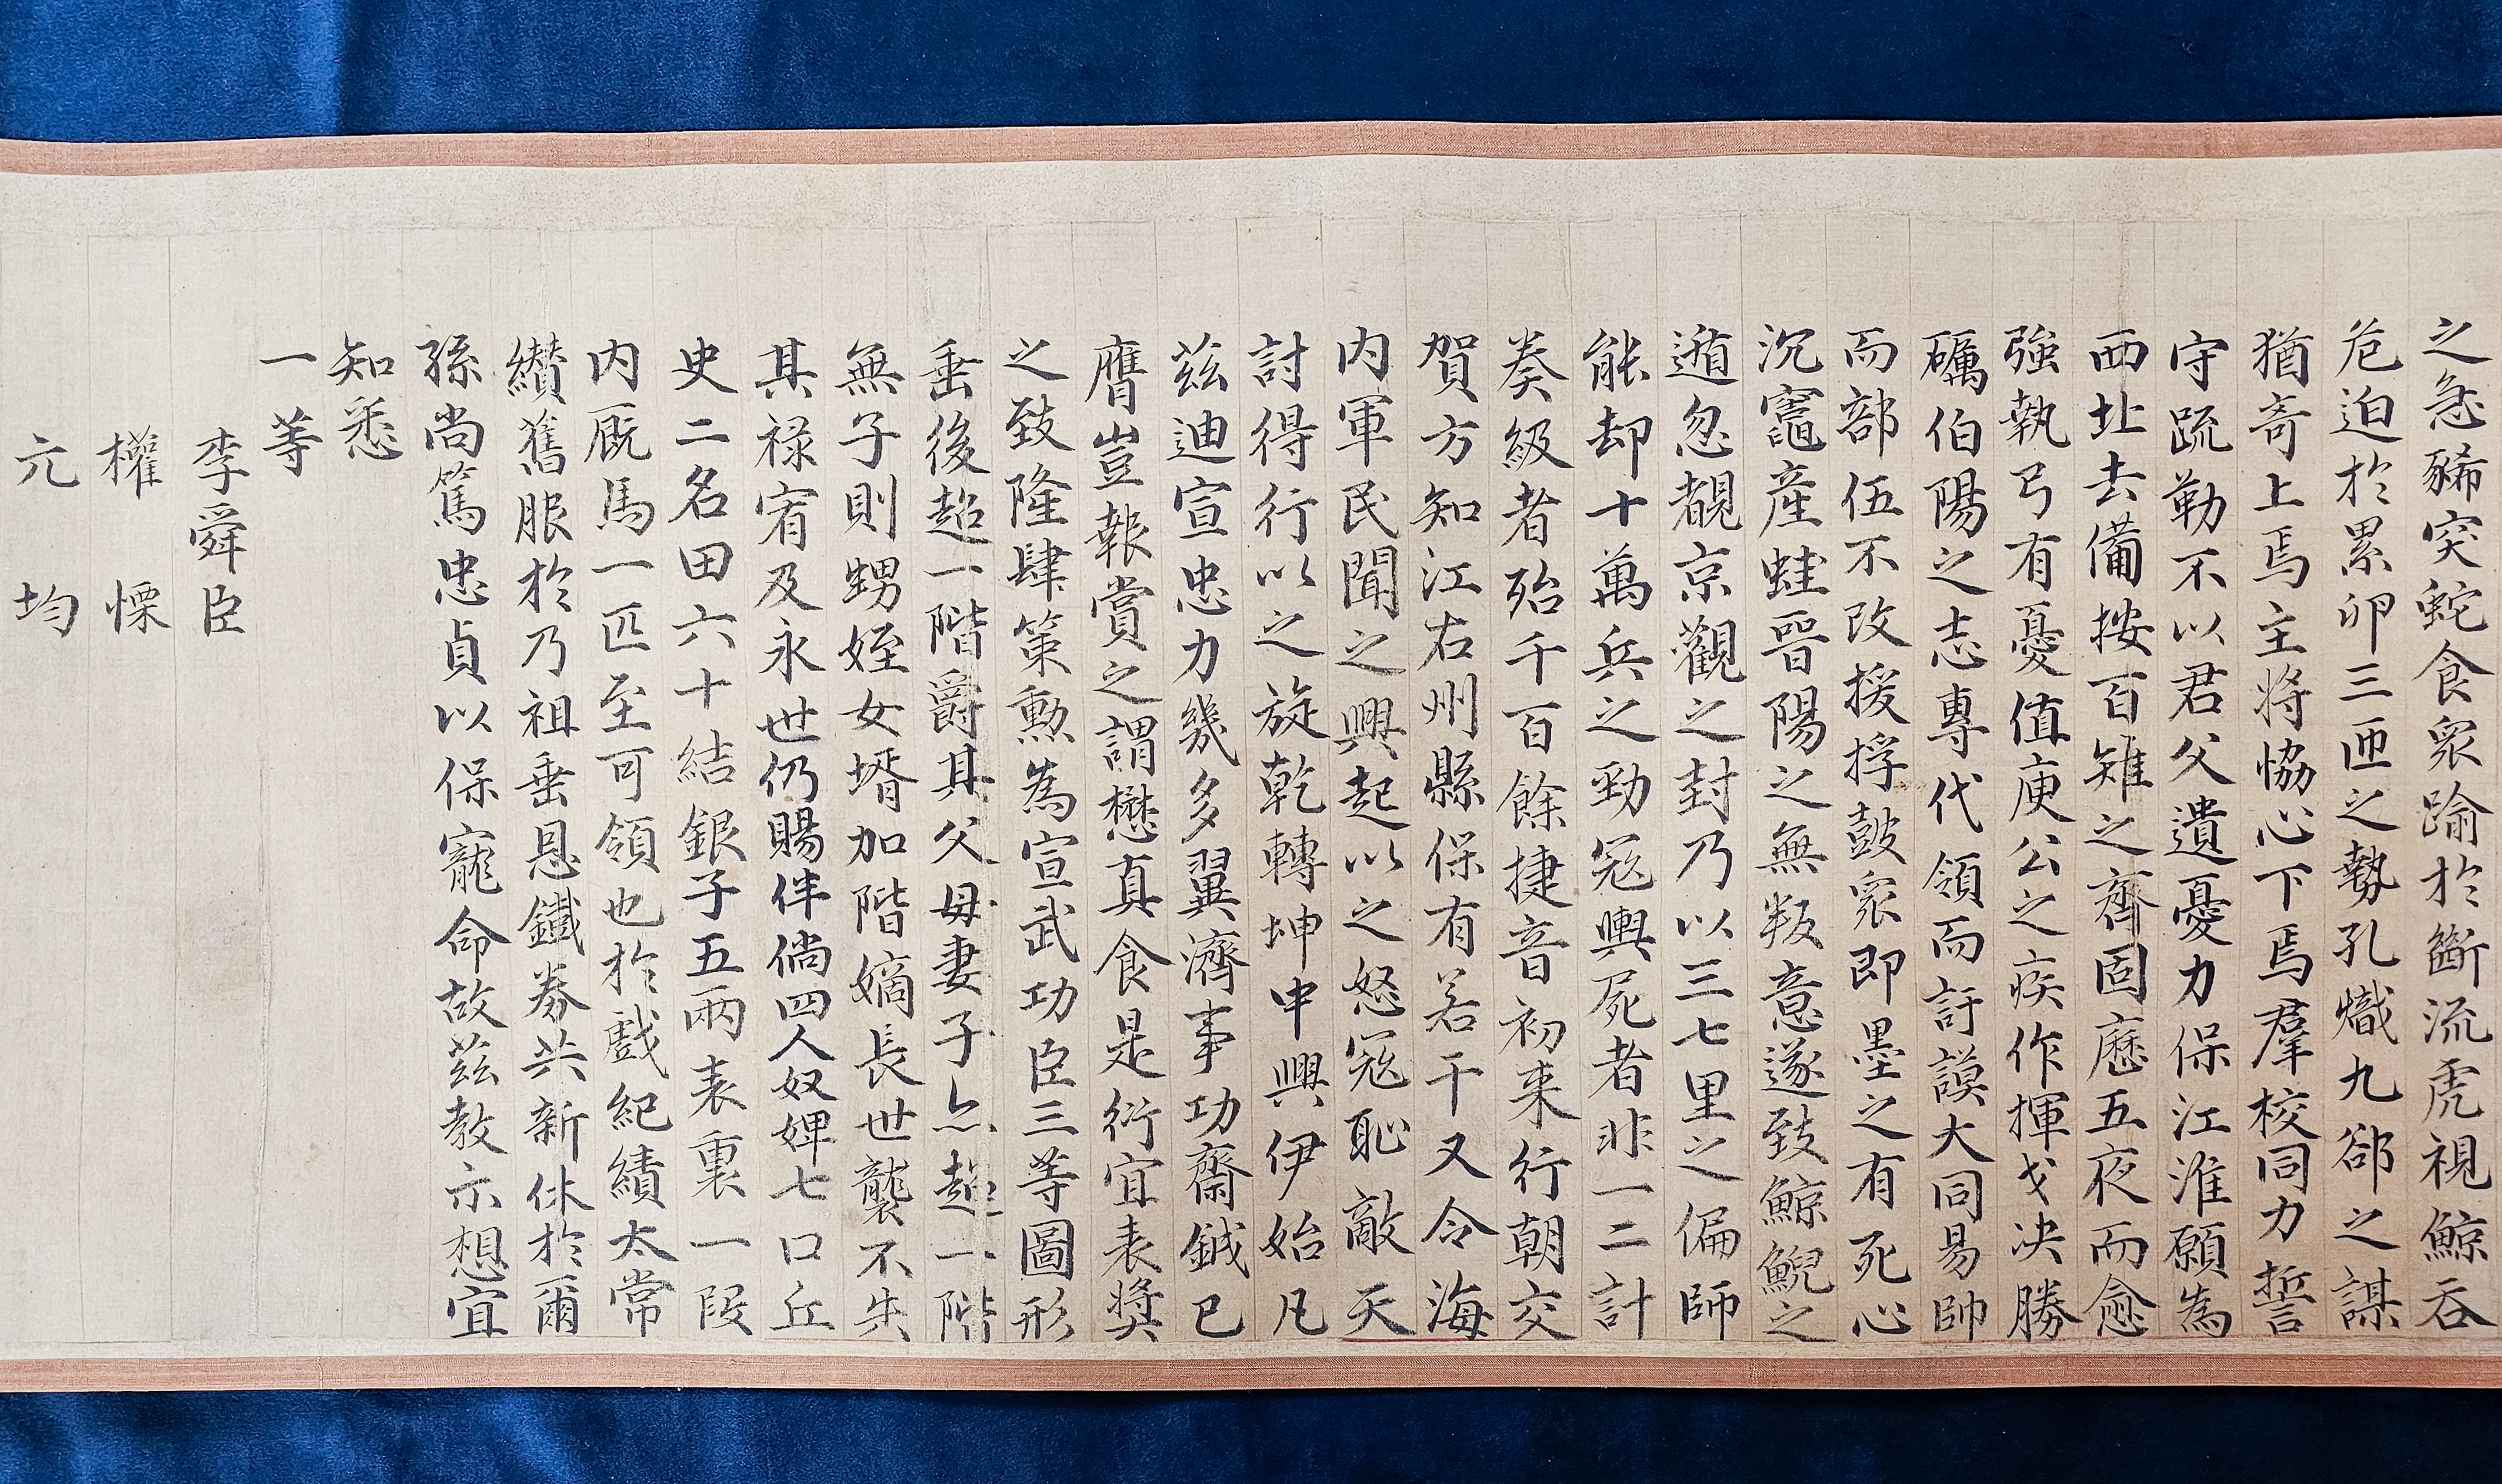 之急豨突蛇食衆踰於斷流虎視鯨吞
危迫於累卵三匝之勢孔熾九郤之謀
猶奇上焉主將恊心下焉羣校同力誓
守䟽勒不以君父遺憂力保江淮願為
西北去備按百雉之齊固歷五夜而愈
強執弓有憂值庾公之疾作揮戈决勝
礪伯陽之志專代領而訏謨大同易帥
而部伍不改援桴鼓衆即墨之有死心
沉竈産蛙晉陽之無叛意遂致鯨鯢之
遁忽覩京觀之封乃以三七里之偏師
能却十萬兵之勁寇輿屍者非一二計
奏級者殆千百餘捷音初来行朝交
賀方知江右州縣保有若干又令海
内軍民聞之興起以之怒寇恥敵天
討得行以之旋乾轉坤中興伊始凡
茲迪宣忠力幾多翼濟事功齋鉞已
膺豈報賞之謂懋真食是衍宜表奬
之致隆肆策勳為宣武功臣三等圖形
垂後超一階爵其父母妻子亦超一階
無子則甥姪女壻加階嫡長世襲不失
其祿宥及永世仍賜伴倘四人奴婢七口丘
史二名田六十結銀子五兩表裏一段
内厩馬一匹至可領也於戲紀績太常
纉舊服於乃祖垂恩鐵券共新休於爾
孫尚篤忠貞以保寵命故茲教示想宜
知悉
一等
李舜臣
權慄
元均